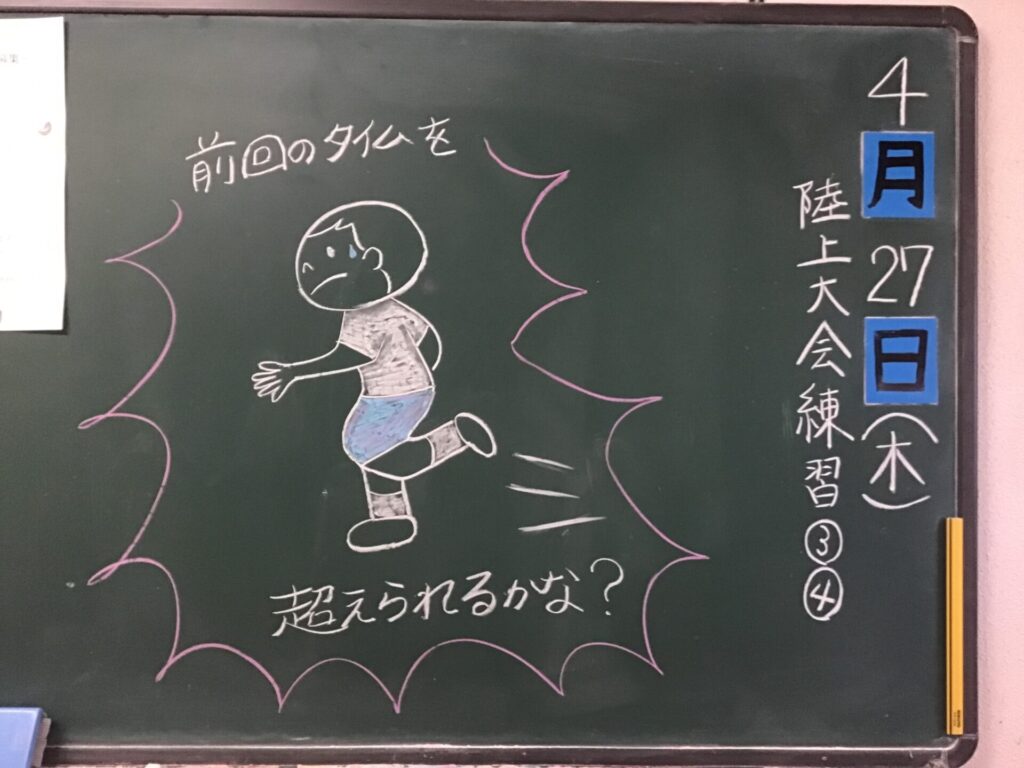 4月27日(木)
陸上大会練習③④
前回のタイムを
超えられるかな?